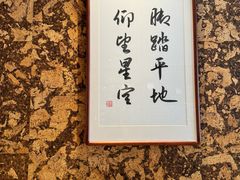 脚踏平地
仰望星空